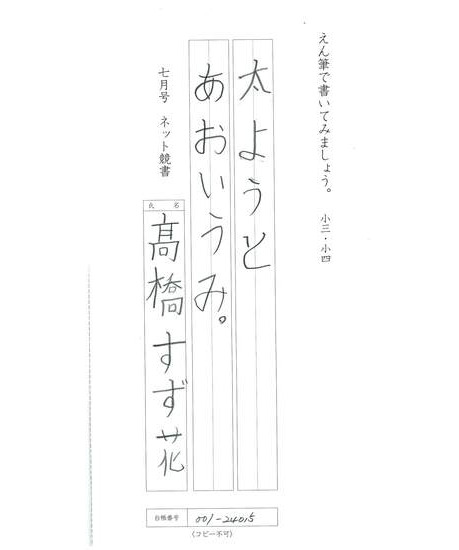 えん筆で書いてみましょう。 小三・小四
太ようと
あおいうみ。
七月号 ネット競書
氏 名
髙橋すず花
台帳番号 001-24015
(コピー不可)